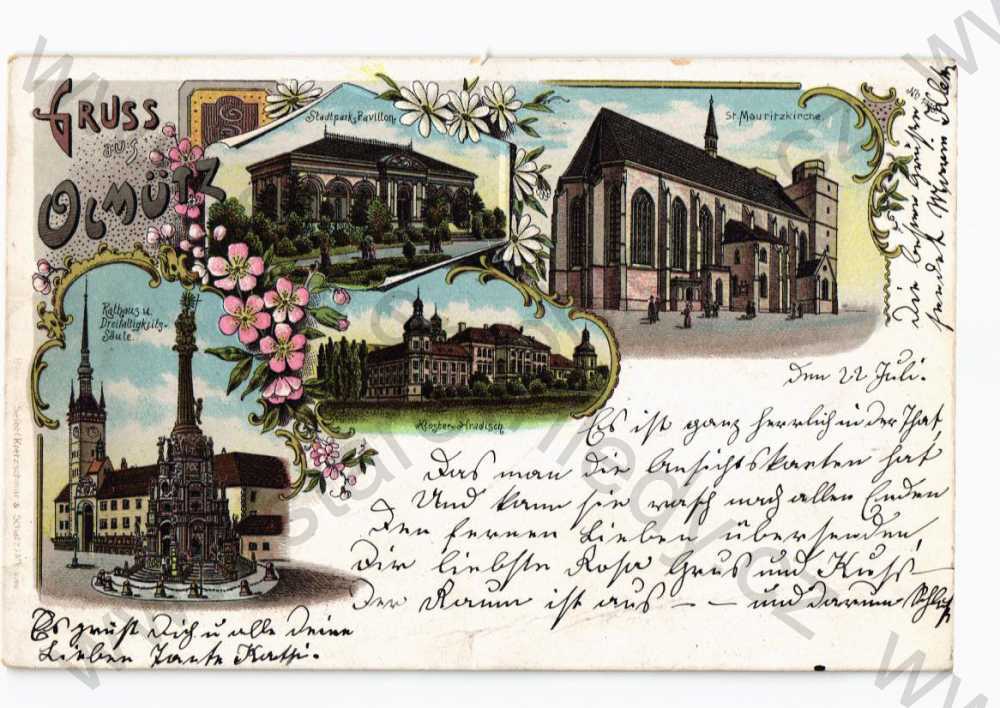 GRUSS
aus
OLMÜTZ
Stadtpark-Pavillon.
St. Mauritzkirche.
Rathaus u.
Dreifaltigkeits-
Säule.
Kloster-Hradisch.
den 22 Juli.
Es ist ganz herrlich in der That,
Das man die Ansichtskarten hat
Und kann sie rasch nach allen Enden
Den fernen Lieben übersenden,
Dir liebste Rosa Grus und Kuss
Der Raum ist aus — — und darum Schluß
Es grüst Dich u alle deine
Lieben Tante Kathi.
die besten Grüße
sendet